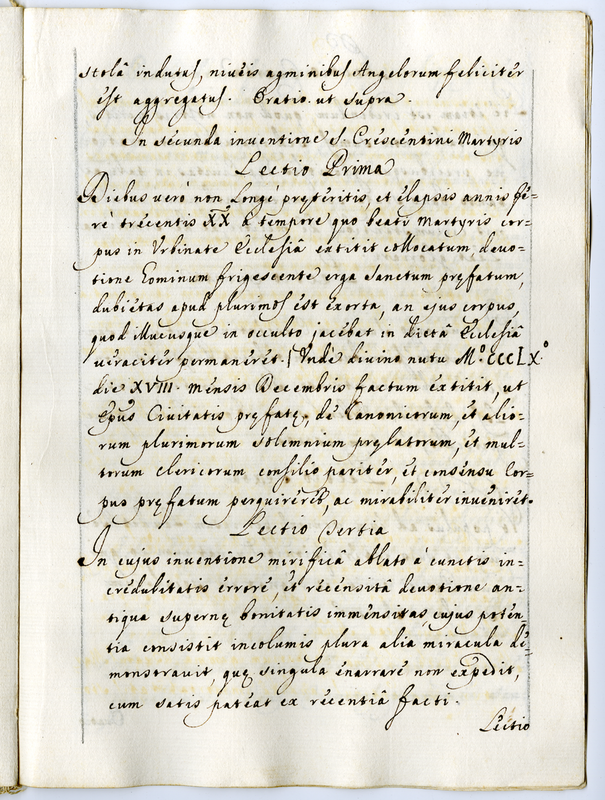 stolâ indutus, niveis agminibus Angelorum feliciter
est aggregatus. Oratio ut supra.
In secunda inventione S. Crescentini Martyris
Lectio Prima
Diebus verò non Longè pręteritis, et elapsis annis fe=
rè trecentis XX à tempore quo beati Martyris cor=
pus in Urbinate Ecclesiâ extitit collocatum devo=
tione hominum frigescente erga sanctum pręfatum,
dubietas apud plurimos est exorta, an ejus corpus,
quod illucusque in occulto jacebat in dictâ Ecclesiâ
veraciter permaneret. / Unde divino nutu M.º CCCLX.º
die XVIII. mensis Decembris factum extitit, ut
Epũs Civitatis pręfatę, de Canonicorum, et alio=
rum plurimorum solemnium pręlatorum, et mul=
torum clericorum consilio pariter, et consensu Cor=
pus pręfatum perquireret, ac mirabiliter inveniret.
Lectio Tertia
In cujus inventione mirificâ ablato à cunctis in=
credulitatis errore, et recensitâ devotione an=
tiqua supernę bonitatis immensitas, cujus poten=
tia consistit incolumis plura alia miracula de=
monstravit, quę singula enarrare non expedit,
cum satis pateat ex recentiâ facti.
Lectio